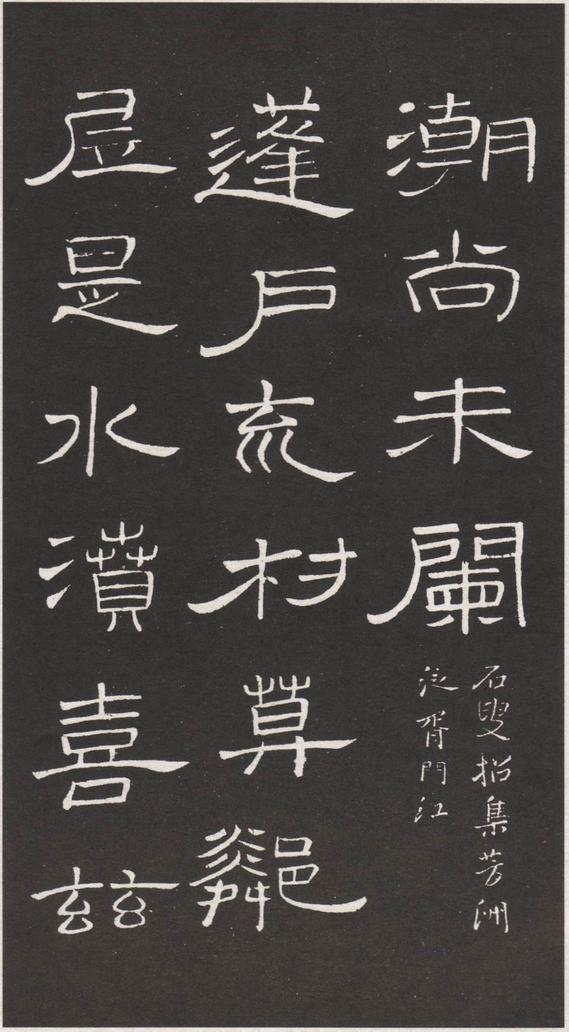 潮尚未闌
石叟招集芳洲
泛胥門江
蓬戶㐬村鄰
是水濆喜茲